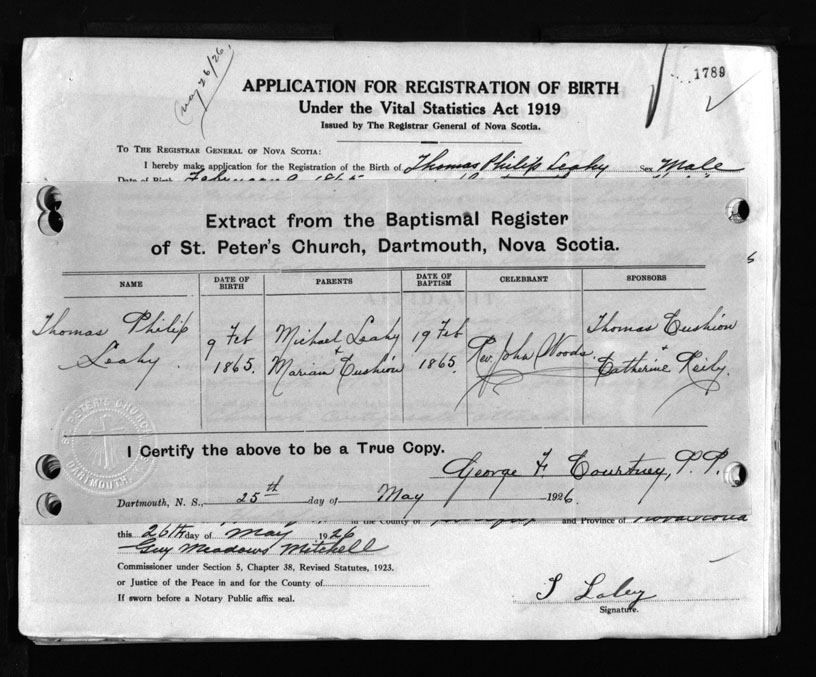 May 26/26.
1789
APPLICATION FOR REGISTRATION OF BIRTH
Under the Vital Statistics Act 1919
Issued by The Registrar General of Nova Scotia.
TO THE REGISTRAR GENERAL OF NOVA SCOTIA:
I hereby make application for the Registration of the Birth of Thomas Philip Leahy Sex Male
Date of Birth February 9 1865
Extract from the Baptismal Register
of St. Peter's Church, Dartmouth, Nova Scotia.
NAME DATE OF BIRTH PARENTS DATE OF BAPTISM CELEBRANT SPONSORS
Thomas Philip Leahy 9 Feb 1865. Michael Leahy + Mariam Cushion 19 Feb 1865. Rev. John Woods. Thomas Cushion + Catherine Reily.
ST. PETER'S CHURCH
DARTMOUTH, N.S.
I Certify the above to be a True Copy.
George F. Courtney, P.P.
Dartmouth, N. S., 25th day of May 1926.
in the County of and Province of Nova Scotia
this 26th day of May 1926
Guy Meadows Mitchell
Commissioner under Section 5, Chapter 38, Revised Statutes, 1923.
or Justice of the Peace in and for the County of
If sworn before a Notary Public affix seal.
Signature.